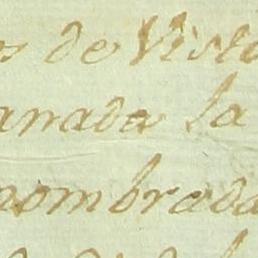 s de Vista
anada la
nombrada